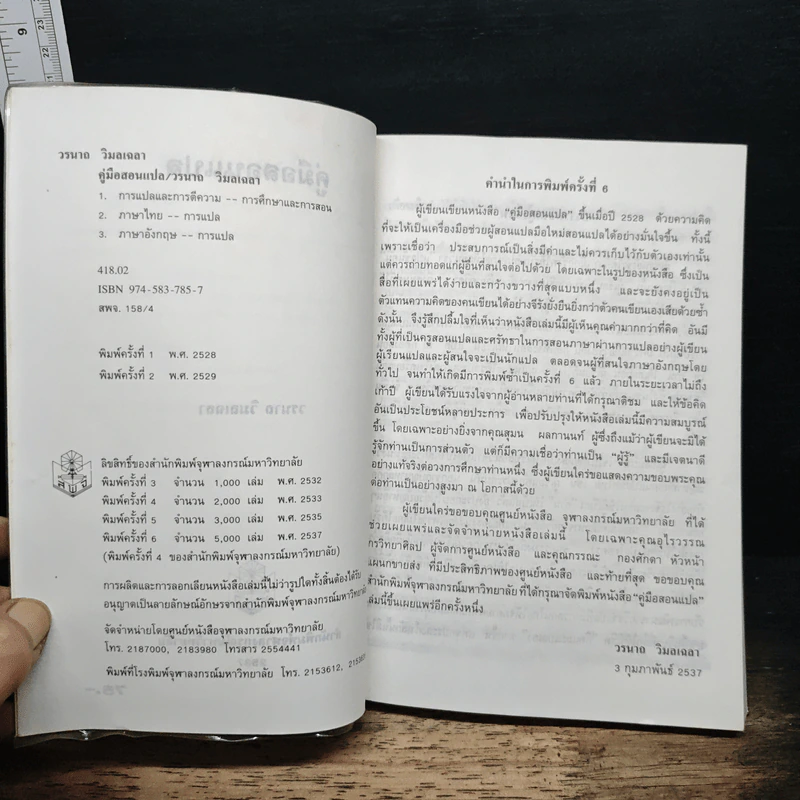 วรนาถ วิมลเฉลา
คู่มือสอนแปล/วรนาถ วิมลเฉลา
1. การแปลและการตีความ -- การศึกษาและการสอน
2. ภาษาไทย -- การแปล
3. ภาษาอังกฤษ -- การแปล
418.02
ISBN 974-583-785-7
สพจ. 158/4
พิมพ์ครั้งที่ 1 พ.ศ. 2528
พิมพ์ครั้งที่ 2 พ.ศ. 2529
ลิขสิทธิ์ของสำนักพิมพ์จุฬาลงกรณ์มหาวิทยาลัย
พิมพ์ครั้งที่ 3 จำนวน 1,000 เล่ม พ.ศ. 2532
พิมพ์ครั้งที่ 4 จำนวน 2,000 เล่ม พ.ศ. 2533
พิมพ์ครั้งที่ 5 จำนวน 3,000 เล่ม พ.ศ. 2535
พิมพ์ครั้งที่ 6 จำนวน 5,000 เล่ม พ.ศ. 2537
(พิมพ์ครั้งที่ 4 ของสำนักพิมพ์จุฬาลงกรณ์มหาวิทยาลัย)
การผลิตและการลอกเลียนหนังสือเล่มนี้ไม่ว่ารูปใดทั้งสิ้นต้องได้รับ
อนุญาตเป็นลายลักษณ์อักษรจากสำนักพิมพ์จุฬาลงกรณ์มหาวิทยาลัย
จัดจำหน่ายโดยศูนย์หนังสือจุฬาลงกรณ์มหาวิทยาลัย
โทร. 2187000, 2183980 โทรสาร 2554441
พิมพ์ที่โรงพิมพ์จุฬาลงกรณ์มหาวิทยาลัย โทร. 2153612,
คำนำในการพิมพ์ครั้งที่ 6
ผู้เขียนเขียนหนังสือ “คู่มือสอนแปล” ขึ้นเมื่อปี 2528 ด้วยความคิด
ที่จะให้เป็นเครื่องมือช่วยผู้สอนแปลมือใหม่สอนแปลได้อย่างมั่นใจขึ้น ทั้งนี้
เพราะเชื่อว่า ประสบการณ์เป็นสิ่งมีค่าและไม่ควรเก็บไว้กับตัวเองเท่านั้น
แต่ควรถ่ายทอดแก่ผู้อื่นที่สนใจต่อไปด้วย โดยเฉพาะในรูปของหนังสือ ซึ่งเป็น
สื่อที่เผยแพร่ได้ง่ายและกว้างขวางที่สุดแบบหนึ่ง และจะยังคงอยู่เป็น
ตัวแทนความคิดของคนเขียนได้อย่างจีรังยั่งยืนยิ่งกว่าตัวคนเขียนเองเสียด้วยซ้ำ
ดังนั้น จึงรู้สึกปลื้มใจที่เห็นว่าหนังสือเล่มนี้มีผู้เห็นคุณค่ามากกว่าที่คิด อันมี
ทั้งผู้ที่เป็นครูสอนแปลและศรัทธาในการสอนภาษาผ่านการแปลอย่างผู้เขียน
ผู้เรียนแปลและผู้สนใจจะเป็นนักแปล ตลอดจนผู้ที่สนใจภาษาอังกฤษโดย
ทั่วไป จนทำให้เกิดมีการพิมพ์ซ้ำเป็นครั้งที่ 6 แล้ว ภายในระยะเวลาไม่ถึง
เก้าปี ผู้เขียนได้รับแรงใจจากผู้อ่านหลายท่านที่ได้กรุณาติชม และให้ข้อคิด
อันเป็นประโยชน์หลายประการ เพื่อปรับปรุงให้หนังสือเล่มนี้มีความสมบูรณ์
ขึ้น โดยเฉพาะอย่างยิ่งจากคุณสุมน ผลกานนท์ ผู้ซึ่งถึงแม้ว่าผู้เขียนจะมิได้
รู้จักท่านเป็นการส่วนตัว แต่ก็มีความเชื่อว่าท่านเป็น “ผู้รู้” และมีเจตนาดี
อย่างแท้จริงต่อวงการศึกษาท่านหนึ่ง ซึ่งผู้เขียนใคร่ขอแสดงความขอบพระคุณ
ต่อท่านเป็นอย่างสูงมา ณ โอกาสนี้ด้วย
ผู้เขียนใคร่ขอขอบคุณศูนย์หนังสือ จุฬาลงกรณ์มหาวิทยาลัย ที่ได้
ช่วยเผยแพร่และจัดจำหน่ายหนังสือเล่มนี้ โดยเฉพาะคุณอุไรวรรณ
กรวิทยาศิลป ผู้จัดการศูนย์หนังสือ และคุณกรรณะ กองศักดา หัวหน้า
แผนกขายส่ง ที่มีประสิทธิภาพของศูนย์หนังสือ และท้ายที่สุด ขอขอบคุณ
สำนักพิมพ์จุฬาลงกรณ์มหาวิทยาลัย ที่ได้กรุณาจัดพิมพ์หนังสือ“คู่มือสอนแปล”
เล่มนี้ขึ้นเผยแพร่อีกครั้งหนึ่ง
วรนาถ วิมลเฉลา
3 กุมภาพันธ์ 2537